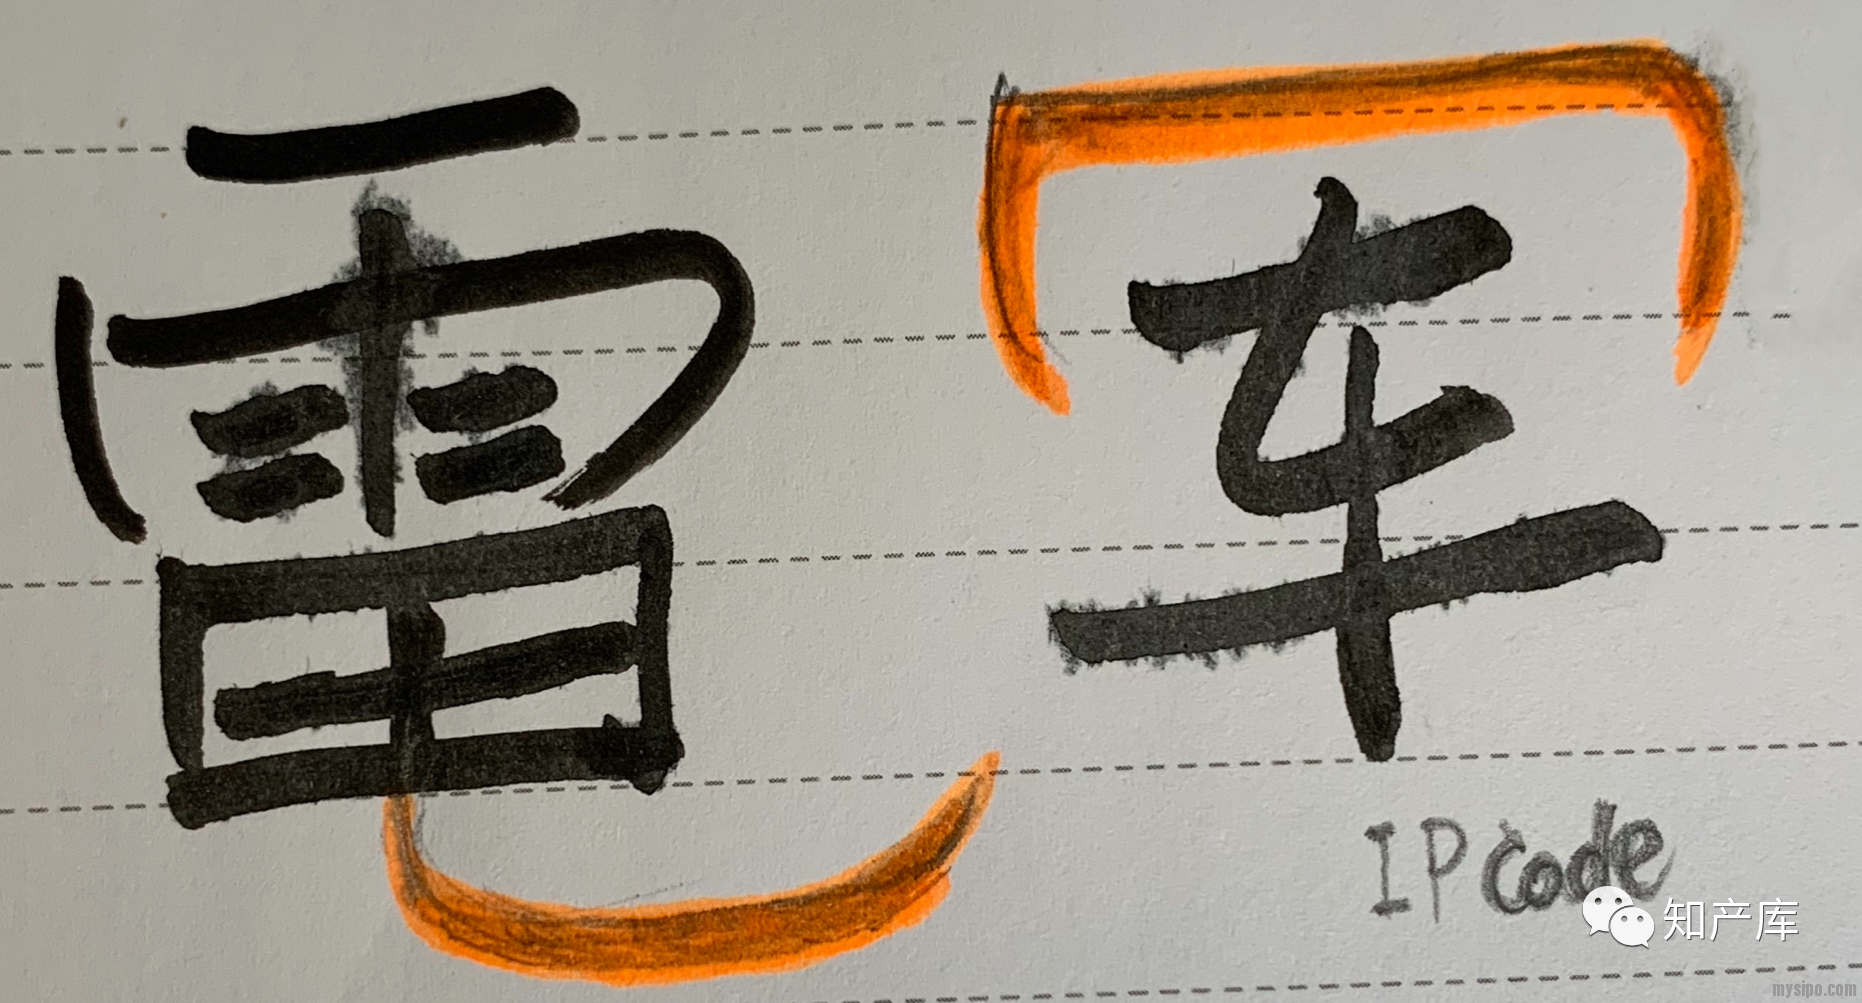 電军
IP code
知产库
mysipo.com